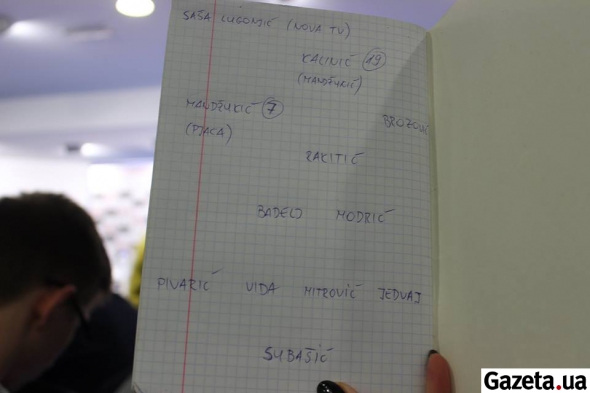 SAŠA LUGONJIĆ (NOVA TV)
KALINIĆ 19
(MANDŽUKIĆ)
MANDŽUKIĆ 7
(PJACA)
BROZOVIĆ
RAKITIĆ
BADELJ MODRIĆ
PIVARIĆ VIDA MITROVIĆ JEDVAJ
SUBAŠIĆ
Gazeta.ua